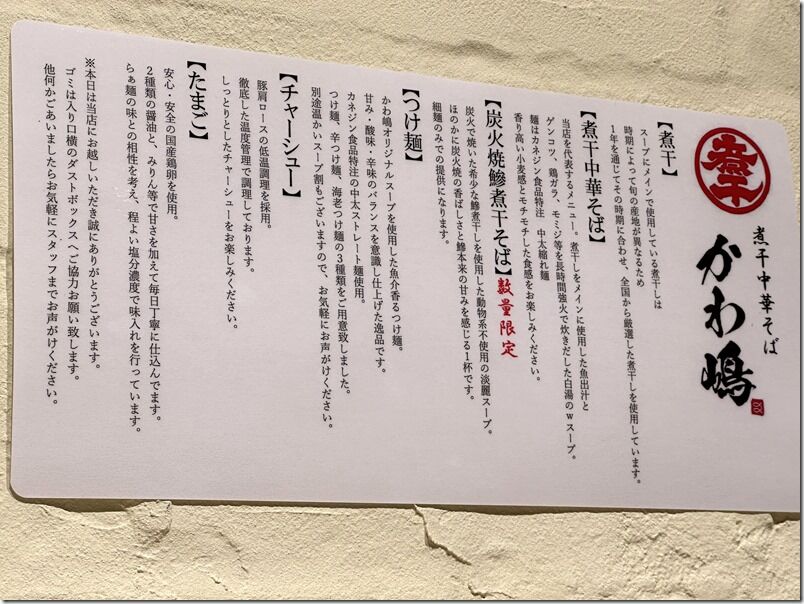 煮干
煮干中華そば
かわ嶋
【煮干】
スープにメインで使用している煮干しは
時期によって旬の産地が異なるため
1年を通じてその時期に合わせ、全国から厳選した煮干しを使用しています。
【煮干中華そば】
当店を代表するメニュー。煮干しをメインに使用した魚出汁と
ゲンコツ、鶏ガラ、モミジ等を長時間強火で炊きだした白湯のwスープ。
麺はカネジン食品特注 中太縮れ麺
香り高い小麦感とモチモチした食感をお楽しみください。
【炭火焼鯵煮干そば】数量限定
炭火で焼いた希少な鯵煮干しを使用した動物系不使用の淡麗スープ。
ほのかに炭火焼の香ばしさと鯵本来の甘みを感じる1杯です。
細麺のみでの提供になります。
【つけ麺】
かわ嶋オリジナルスープを使用した魚介香るつけ麺。
甘み・酸味・辛味のバランスを意識し仕上げた逸品です。
カネジン食品特注の中太ストレート麺使用。
つけ麺、辛つけ麺、海老つけ麺の3種類をご用意致しました。
別途温かいスープ割もございますので、お気軽にお声がけください。
【チャーシュー】
豚肩ロースの低温調理を採用。
徹底した温度管理で調理しております。
しっとりとしたチャーシューをお楽しみください。
【たまご】
安心・安全の国産鶏卵を使用。
2種類の醤油と、みりん等で甘さを加えて毎日丁寧に仕込んでます。
らぁ麺の味との相性を考え、程よい塩分濃度で味入れを行っています。
※本日は当店にお越しいただき誠にありがとうございます。
ゴミは入り口横のダストボックスへご協力お願い致します。
他何かごあいましたらお気軽にスタッフまでお声がけください。